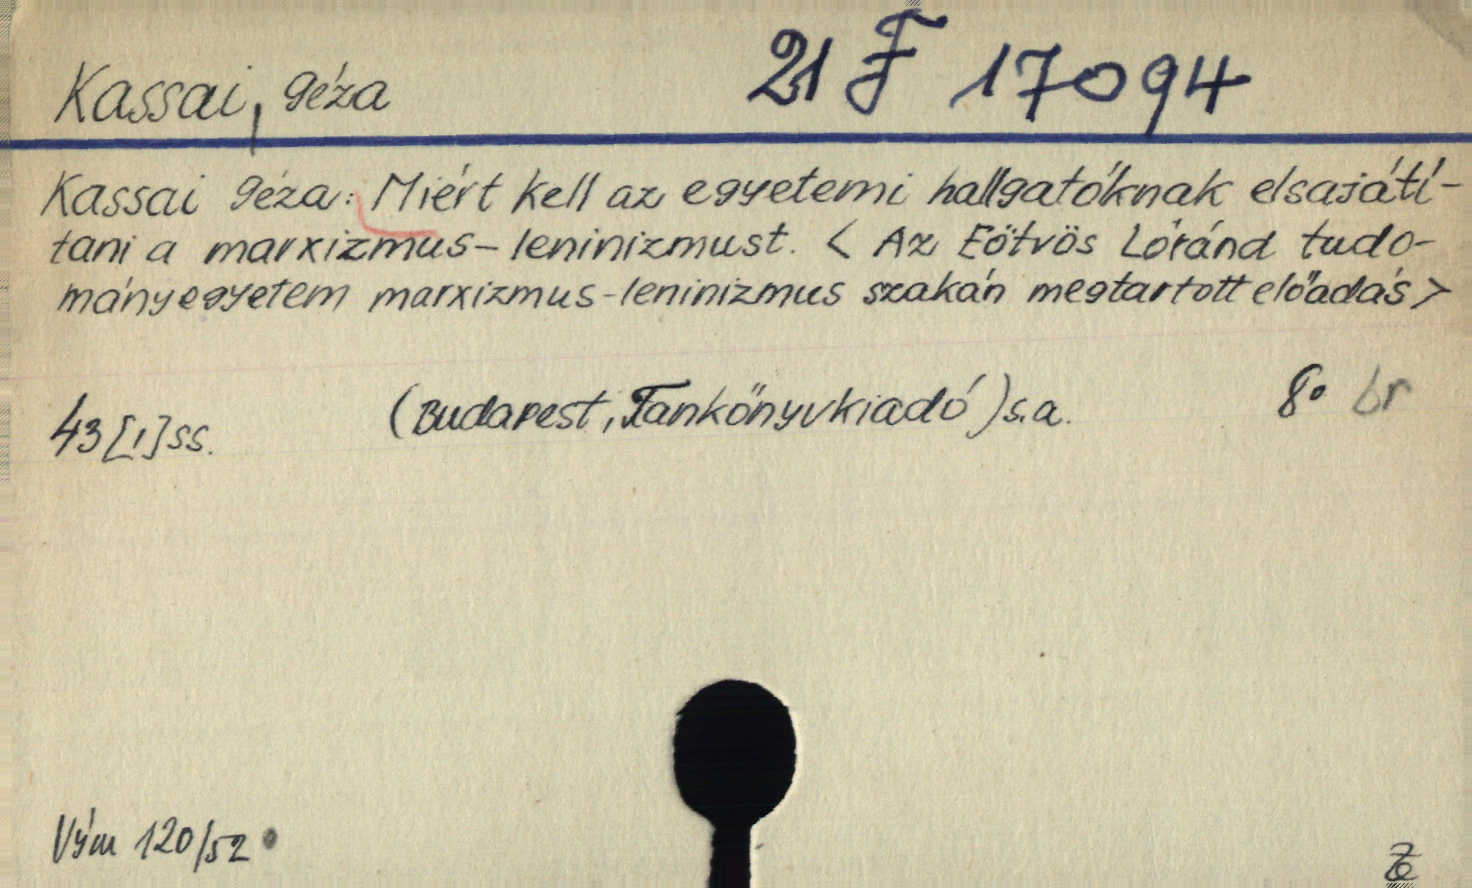 Kassai, Géza
21 F 17094
Kassai Géza: Miért kell az egyetemi hallgatóknak elsajátí-
tani a marxizmus-leninizmust. < Az Eötvös Lóránd tudo-
mányegyetem marxizmus-leninizmus szakán megtartott előadás >
43 [1] ss. (Budapest, Tankönyvkiadó) s.a. 8° br
Vým 120/52